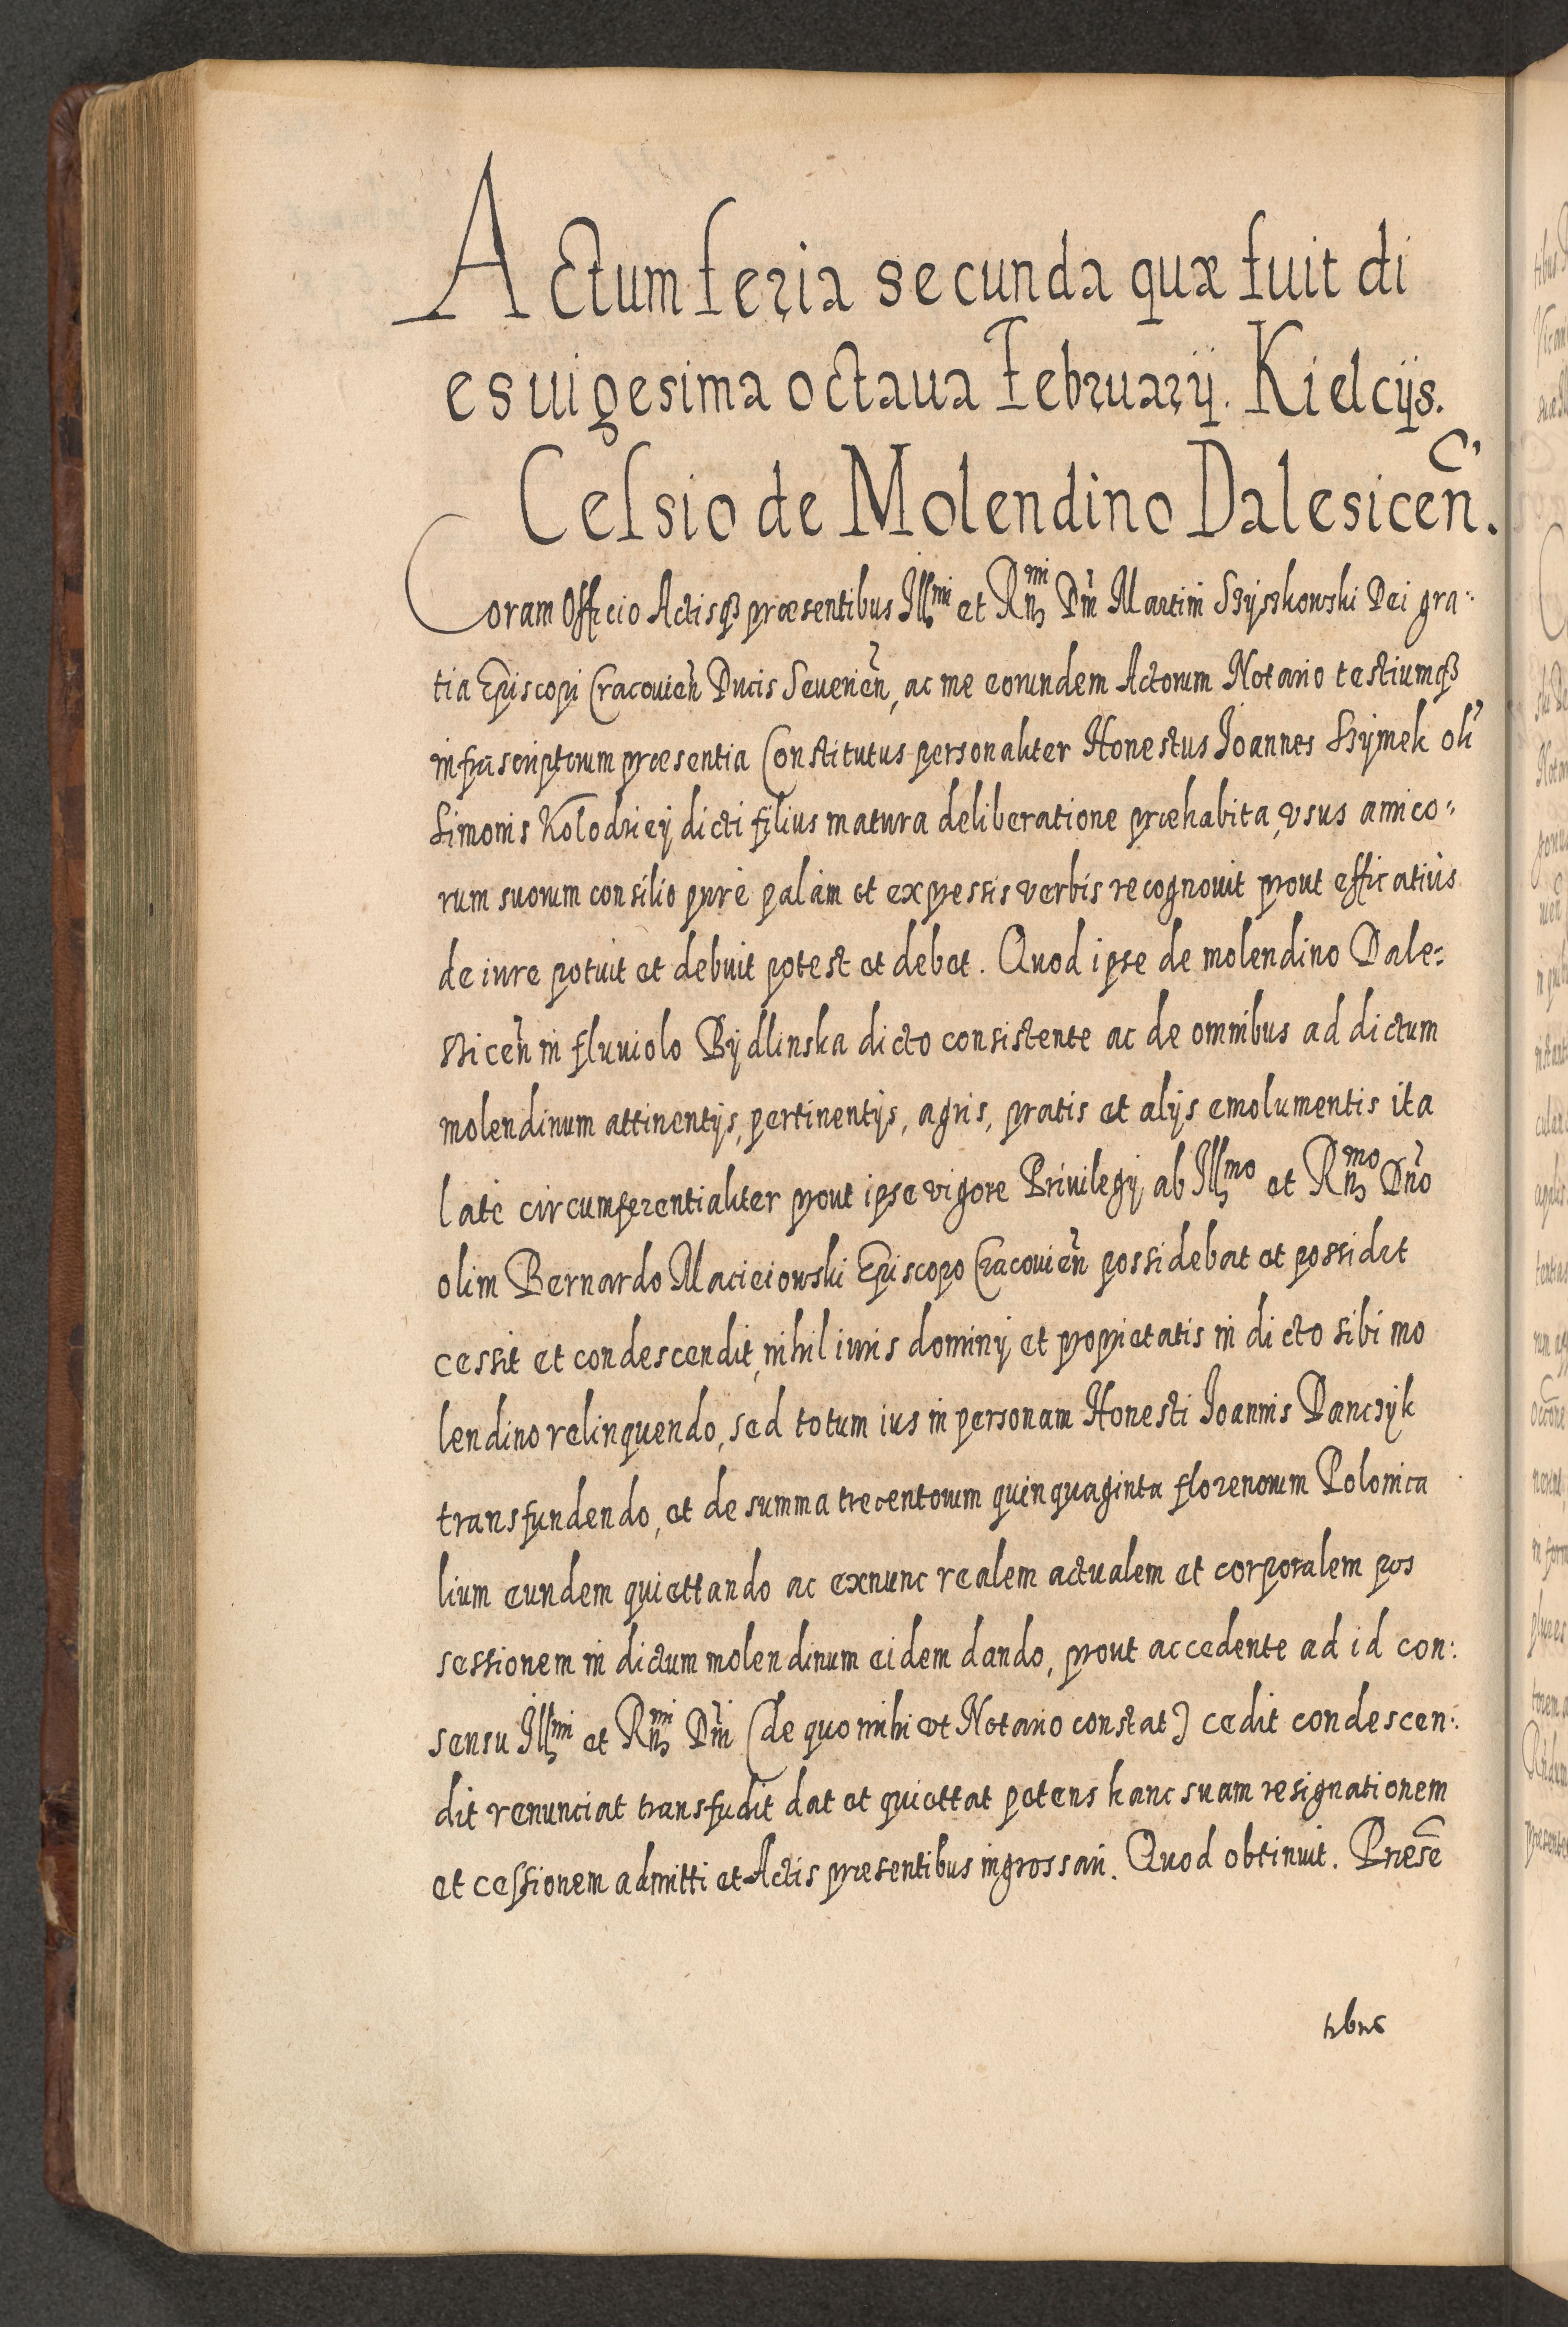 Actum feria secunda quæ fuit di
es uigesima octaua Februarÿ. Kielcÿs.
Celsio de Molendino Dalesicen̄.
Coram Officio Actisqꝫ præsentibus Illmi et Rndmi Dni Martini Szyszkowski Dei gra⸗
tia Episcopi Cracovien̄ Ducis Severien̄, ac me eorundem Actorum Notario testiumqꝫ
infrascriptorum præsentia Constitutus personaliter Honestus Joannes Szÿmek oli̓
Simonis Kolodzieÿ dicti filius matura deliberatione præhabita, vsus amico⸗
rum suorum consilio purè palàm et expressis verbis recognovit prout efficatiùs
de iure potuit et debuit potest et debet. Quod ipse de molendino Dale⸗
szicen̄ in fluviolo Bÿdlinska dicto consistente ac de omnibus ad dictum
molendinum attinentÿs, pertinentÿs, agris, pratis et alÿs emolumentis ita
latè circumferentialiter prout ipse vigore Privilegÿ ab Illmo et Rndmo Dn̄o
olim Bernardo Macieiowski Episcopo Cracovien̄ possidebat et possidet
cessit et condescendit, nihil iuris dominÿ et proprietatis in dicto sibi mo
lendino relinquendo, sed totum ius in personam Honesti Joannis Danczÿk
transfundendo, et de summa trecentorum quinquaginta florenorum Polonica
lium eundem quiettando ac exnunc realem actualem et corporalem pos
sessionem in dictum molendinum eidem dando, prout accedente ad id con:
sensu Illmi et Rndmi Dni (de quo mihi vt Notario constat) cedit condescen⸗
dit renunciat transfudit dat et quiettat petens hanc suam resignationem
et cessionem admitti et Actis præsentibus ingrossari. Quod obtinuit. Præsē
tibus